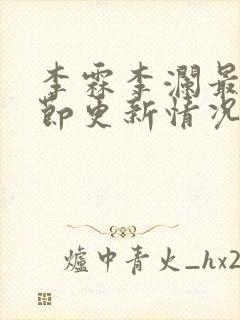 李霖李瀾最
節更新情况
爐中青火_hx2